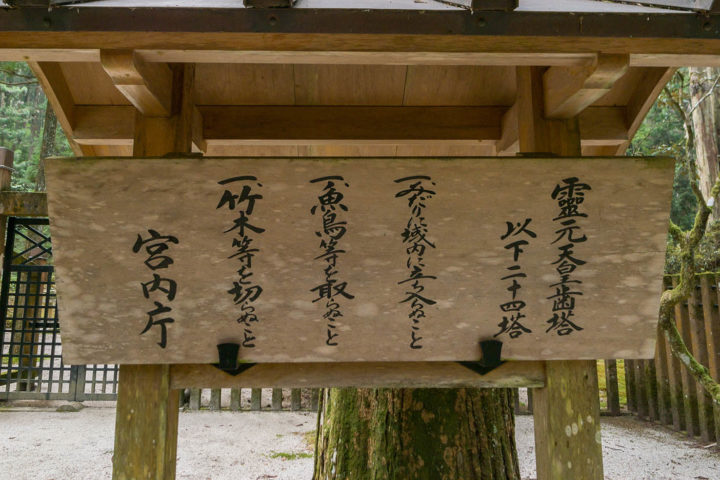 靈元天皇歯塔
以下二十四塔
一、みだりに域内に立ち入らぬこと
一、魚鳥等を取らぬこと
一、竹木等を切らぬこと
宮内庁